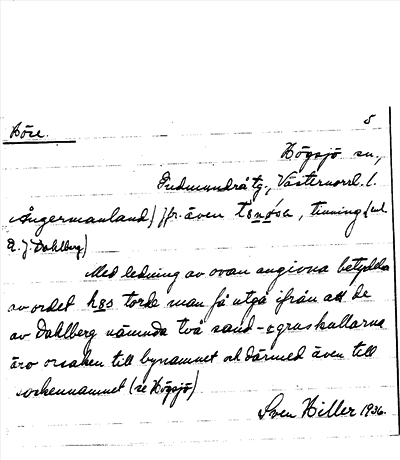 5
Höse.
Högsjö sn.,
Gudmundrå tg., Västernorrl. l.
Ångermanland) jfr. även tinning (enl.
A. J. Dahlberg)
Med ledning av ovan angivna betydelse
av ordet torde man få utgå ifrån att de
av Dahlberg nämnda två sand- o gruskullarna
äro orsaken till bynamnet och därmed även till
sockennamnet (se Högsjö)
Sven Hiller 1936.